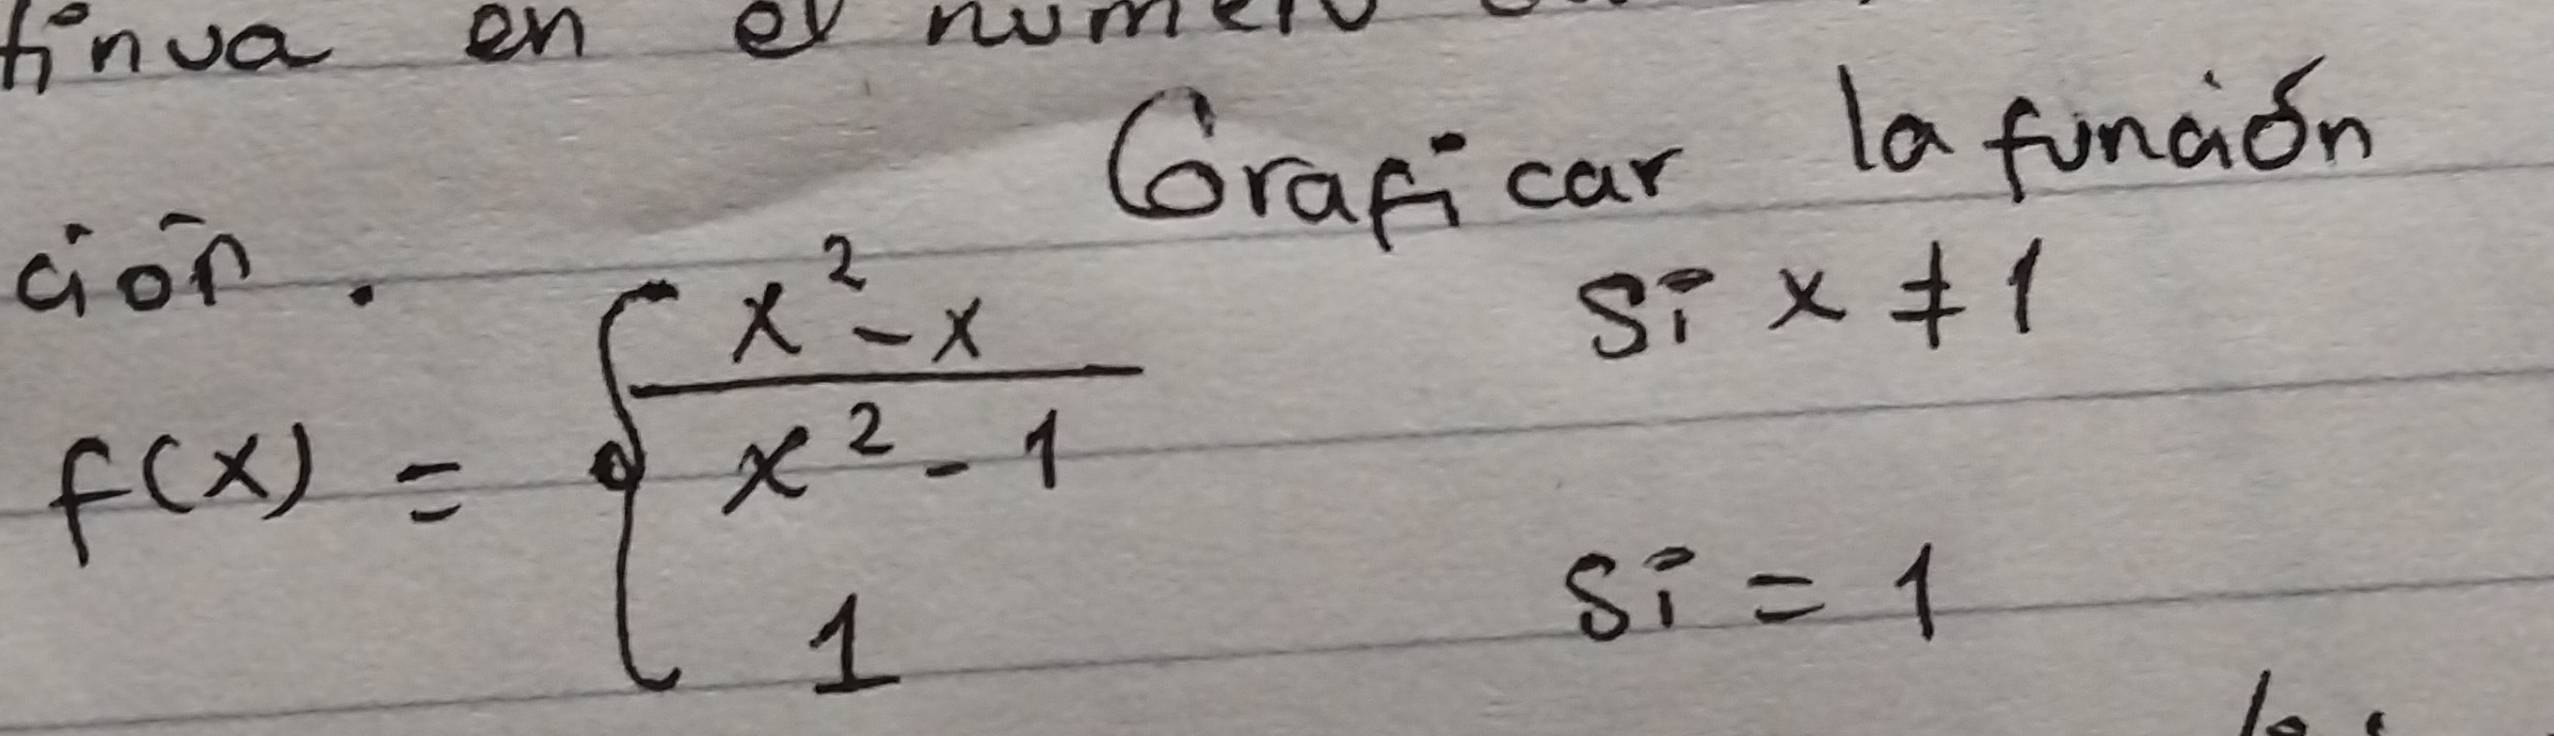 tinua en el numero
Graficar la función
ción.
f(x) = { x² - x / x² - 1 si x ≠ 1
1 si = 1